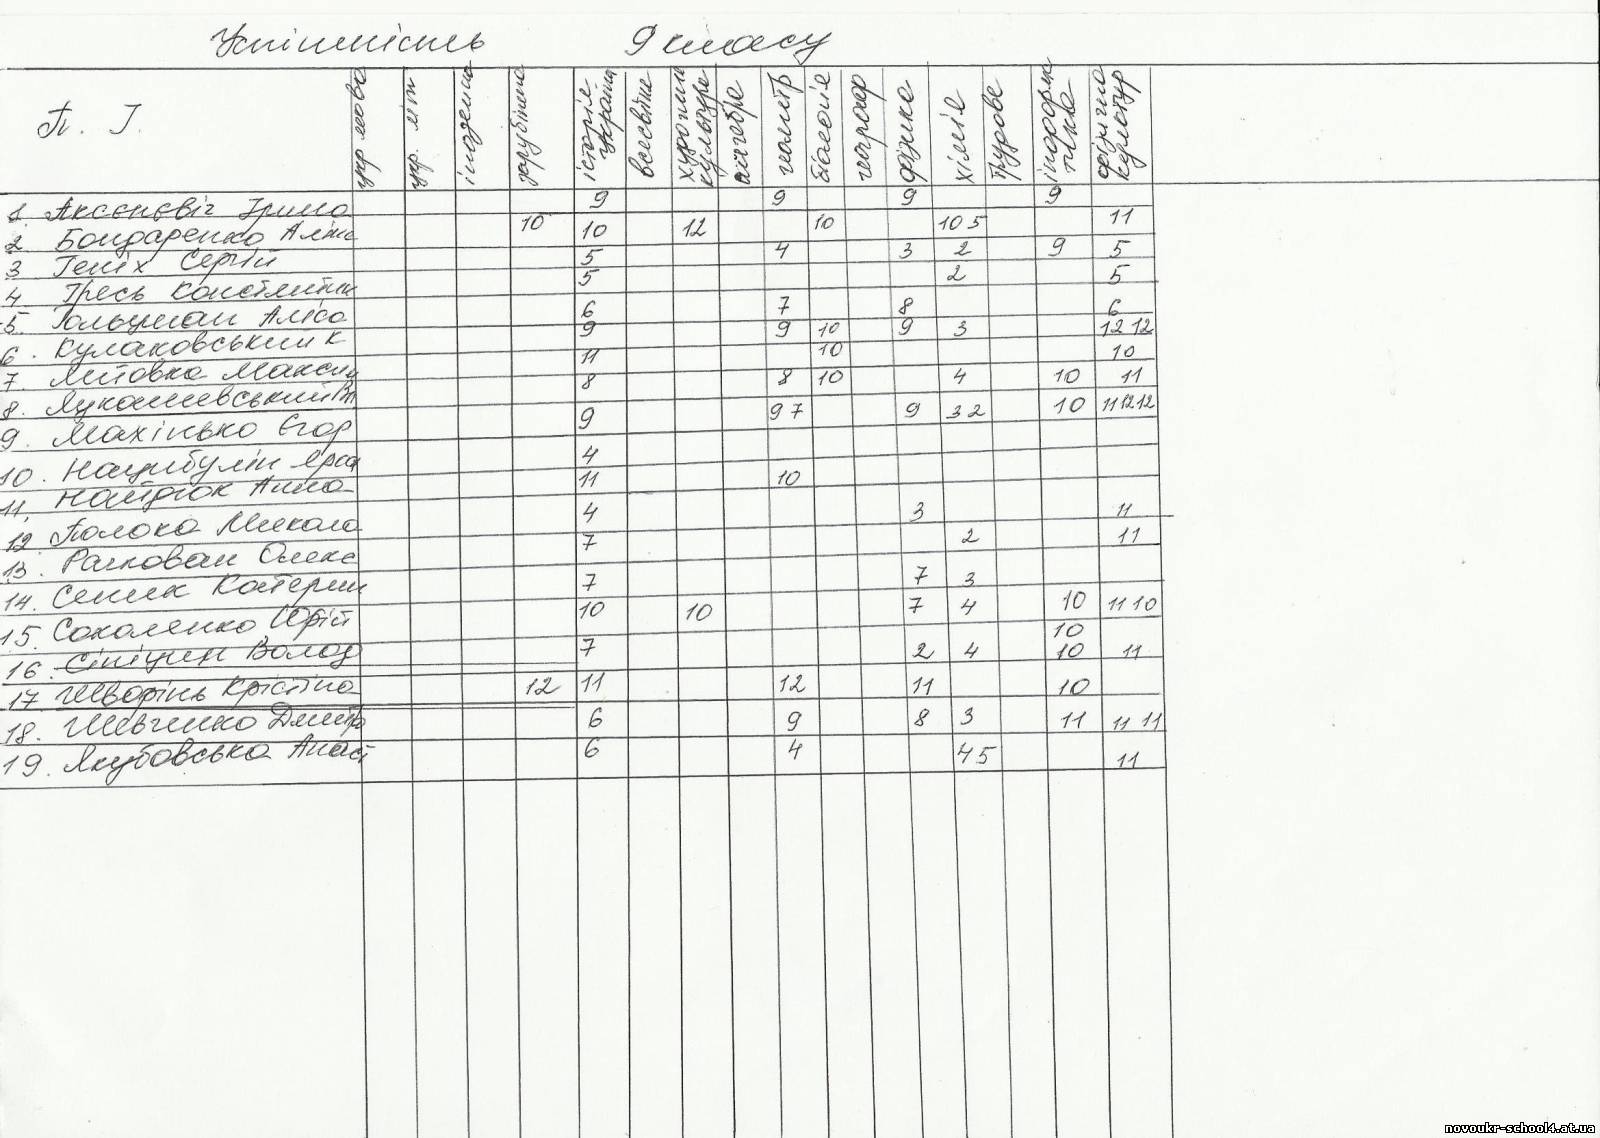 Успішність 9 класу
П. І. укр. мова укр. літ іноземна зарубіжна історія україни всесвітня художня культура алгебра геометр біологія географ фізика хімія трудове інформатика фізична культур
1 Аксєнєвіч Ірина 9 9 9 9
2. Бондаренко Аліна 10 10 12 10 10 5 11
3 Геніх Сергій 5 4 3 2 9 5
4 Гресь Констянтин 5 2 5
5. Гольцман Аліса 6 7 8 6
6. Кулаковський К 9 9 10 9 3 12 12
7. Литовка Максим 11 10 10
8. Лукашевський 8 8 10 4 10 11
9. Махінько Єгор 9 9 7 9 3 2 10 11 12 12
10. Нацибулін Яро 4
11. Найдюк Анна 11 10
12. Полока Микола 4 3 11
13. Раакован Олекс 7 2 11
14. Сеник Катерин 7 7 3
15. Соколенко Юрій 10 10 7 4 10 11 10
16. Сініцин Волод 7 2 4 10 10 11
17. Шворінь Крістіна 12 11 12 11 10
18. Шевченко Дмитро 6 9 8 3 11 11 11
19. Якубовська Анаст 6 4 4 5 11
novoukr-school4.at.ua